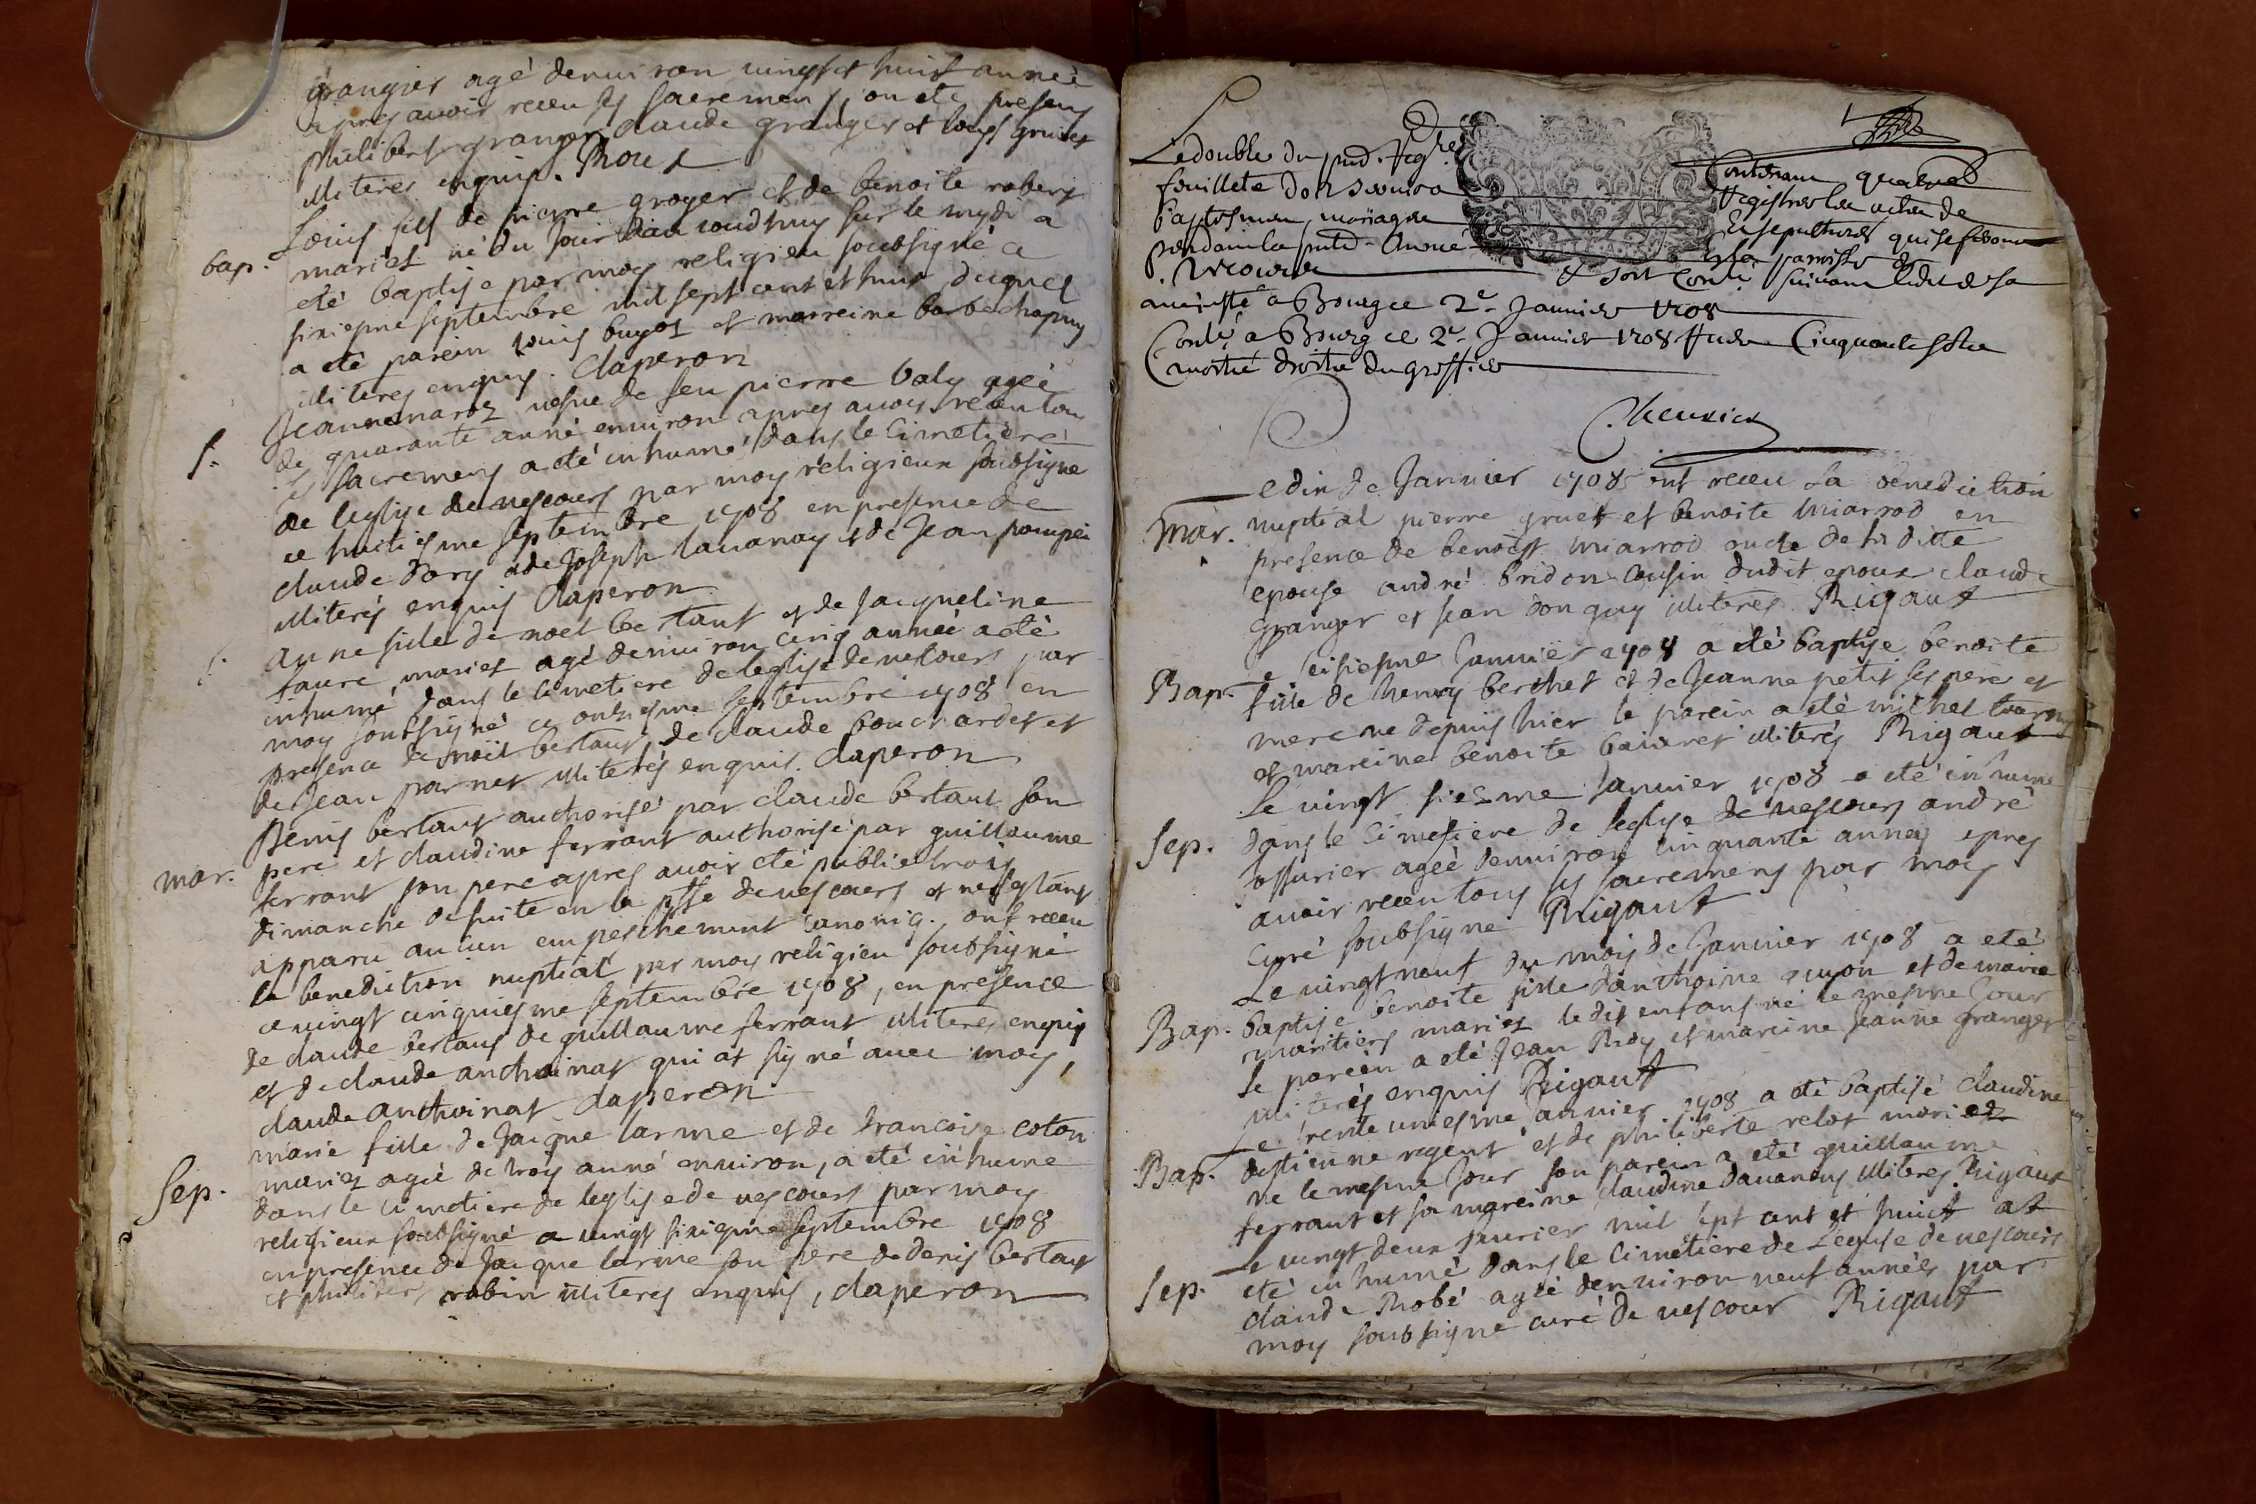 grangier agé denuiron uingt et huist année
apres auoir receu ses sacremens, on eté presens
philibert granger claude granger et louys gruet
illiteres enquis. Rout
bap. Louis fils de pierre groyer et de benoite robert
mariez né du jour dau ioudhuy sur le mydi a
eté baptise par moy religieu soubsigné ce
sixiesme septembre mil sept cent et huit duquel
a eté parein louis buyot et marreine barbe chapuy
illiteres enquis. Claperon
S. Jeanne maroz uefue de feu pierre baly ageé
de quarante anné enuiron apres auoir receu tou
ses sacremens a eté inhumé dans le Cimetiere
de leglise de uescours par moy religieux soubsigne
ce huitiesme septembre 1708 en presence de
claude dory de Joseph lauanay et de Jean pompei
illiterés enquis Claperon
S. anne fille de noel bertaut et de Jacqueline
faure, mariez agé denuiron cinq année a eté
inhumé dans le Cimetiere de leglise de uescours par
moy soubsigné ce onziesme septembre 1708 en
presence de noël bertaut, de claude bouchardet et
de Jean parnet illiterés enquis. claperon
mar. Denis bertaut authorisé par claude bertaut son
pere et claudine ferrant authorisé par guillaume
ferrant son pere apres auoir eté publiez trois
dimanche de suite en la psse de uescours et ne sestant
apparu aucun empeschement canoniq., ont receu
la benediction nuptial par moy religieu soubsigné
ce uingt cinquiesme septembre 1708, en presence
de claude bertaut de guillaume ferrant illiteres enquis
et de claude anthoinat qui at signé auec moy,
claude anthoinat claperon
Sep. marie fille de Jacque larme et de francoise coton
mariez ageé de trois anné enuiron, a eté inhume
dans le Cimetiere de leglise de uescours par moy
religieux soubsigné ce uingt sixiesme septembre 1708
en presence de Jacque larme son pere de denis bertaut
et philibert robin illiteres enquis, claperon
Le double du pnt. Regre Contenant quatre
fouillets doit seruira Registrer les actes de
baptesmes, mariages Et sepultures qui se feront
pendant la pnte Anneé En la parroisse de
Vescours & sera Conté suiuant Ledit de sa
maiesté a Bourg ce 2e. Januier 1708
Conté a Bourg ce 2e. Januier 1708 Cinquante solz
moitié droitz du greffier
Cheurier
Mar. Le dix de Januier 1708 ont receu La benediction
nuptial pierre gruet et benoite miarrod en
presence de benoist miarrod oncle de la ditte
epouse andré bridon cousin dudit epoux claude
granger et jean donguy illiterés Rigaut
Bap. Le Januier 1708 a eté baptise benoite
fille de henry berchet et de Jeanne petit ses pere et
mere ne depuis hier le parein a eté michel
et mareine benoite illiterés Rigaut
Sep. Le uingt siezme Januier 1708 a eté inhume
dans le Cimetiere de leglise de uescours andré
ageé denuiron cinquante anneés apres
auoir receu tous ses sacremens par moy
Curé soubsigne Rigaut
Bap. Le uingt neuf du mois de Januier 1708 a eté
baptise benoite fille danthoine guyon et de marie
maritiers mariez le dit enfant né le mesme Jour
le parein a eté Jean Roy et mareine Jeanne granger
illiterés enquis Rigaut
Bap. Le trente uniesme Januier 1708 a eté baptisé claudine
destienne regent et de philiberte relot mariez
ne le mesme Jour son parein a eté guillaume
ferrant et sa mareine claudine dauanoy illiteres Rigaut
Sep. Le uingt deux feurier mil sept cent et huict at
eté inhumé dans le Cimetiere de Leglise de uescours
claude Robé ageé denuiron neuf anneés par
moy soubsigne curé de uescour Rigaut